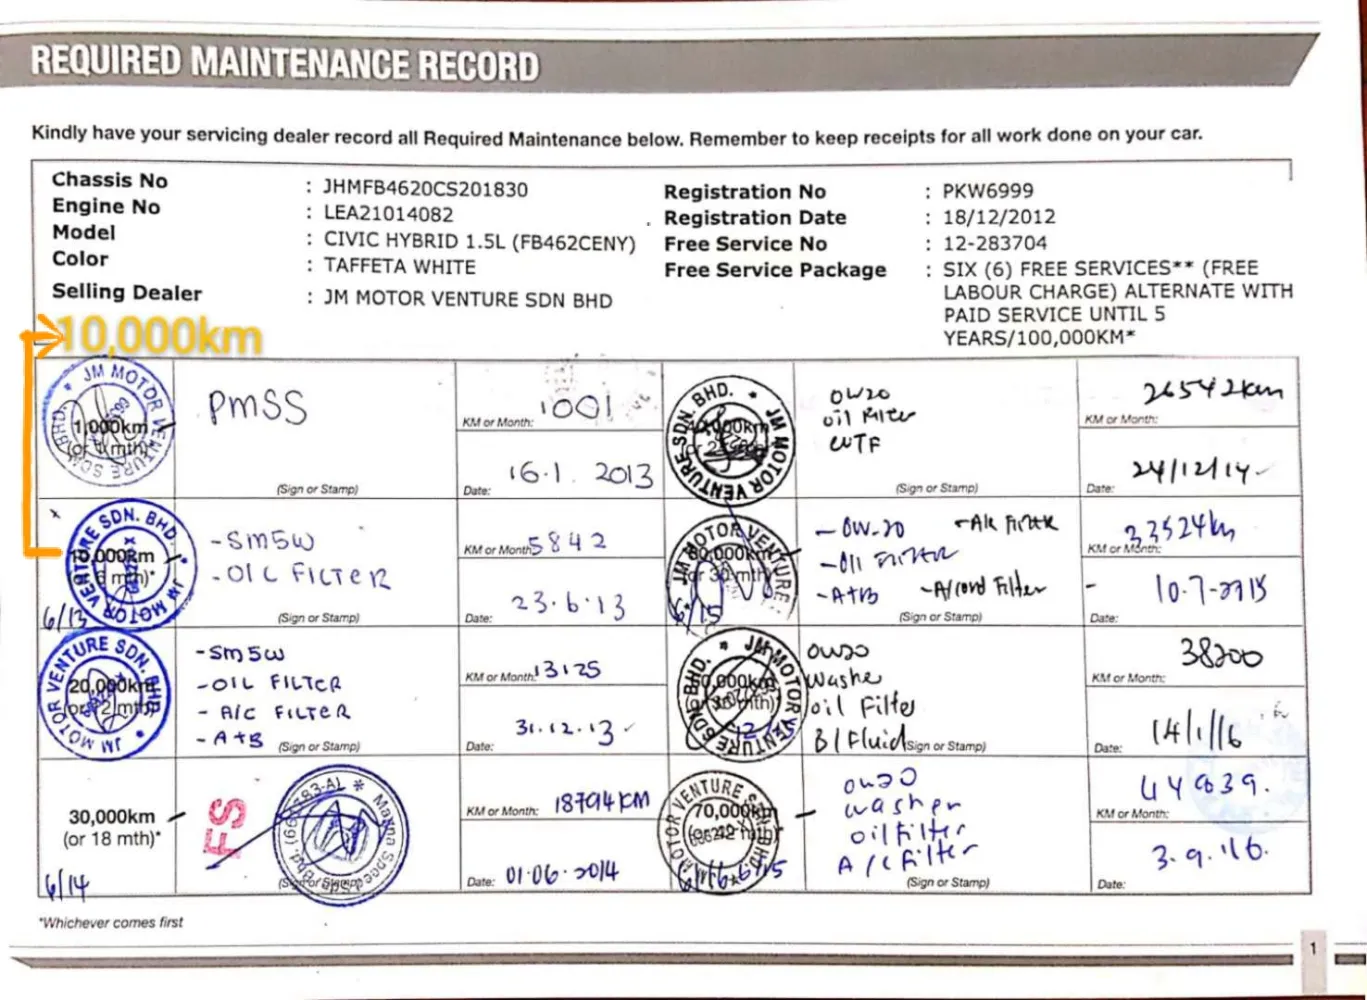 REQUIRED MAINTENANCE RECORD
Kindly have your servicing dealer record all Required Maintenance below. Remember to keep receipts for all work done on your car.
Chassis No : JHMFB4620CS201830
Engine No : LEA21014082
Model : CIVIC HYBRID 1.5L (FB462CENY)
Color : TAFFETA WHITE
Selling Dealer : JM MOTOR VENTURE SDN BHD
Registration No : PKW6999
Registration Date : 18/12/2012
Free Service No : 12-283704
Free Service Package : SIX (6) FREE SERVICES** (FREE
LABOUR CHARGE) ALTERNATE WITH
PAID SERVICE UNTIL 5
YEARS/100,000KM*
10,000km
JM MOTOR VENTURE SDN BHD.
1,000km
(or 1 mth)
PMSS
(Sign or Stamp)
KM or Month: 1001
Date: 16.1.2013
JM MOTOR VENTURE SDN. BHD.
10,000km
6 mth)*
6/13
- SM5W
- OIL FILTER
(Sign or Stamp)
KM or Month: 5842
Date: 23.6.13
JM MOTOR VENTURE SDN. BHD
20,000km
(or 12 mth)
- SM5W
- OIL FILTER
- A/C FILTER
- A+B
(Sign or Stamp)
KM or Month: 13125
Date: 31.12.13
30,000km
(or 18 mth)*
6/14
FS
(Sign or Stamp)
KM or Month: 18794KM
Date: 01.06.2014
JM MOTOR VENTURE SDN. BHD.
0W20
oil Filter
WTF
(Sign or Stamp)
KM or Month: 26542km
Date: 24/12/14
JM MOTOR VENTURE
(or 30 mth)
6/15
- 0W-20
- Oil FILTER
- A+B
(Sign or Stamp)
KM or Month: 33524km
Date: 10.7.2015
JM MOTOR VENTURE SDN. BHD.
0W20
Washer
oil Filter
B/Fluid
(Sign or Stamp)
KM or Month: 38200
Date: 14/1/16
MOTOR VENTURE SDN BHD.
70,000km
0W20
washer
oil filter
A/C filter
(Sign or Stamp)
KM or Month: 44839.
Date: 3.9.16.
*Whichever comes first
1